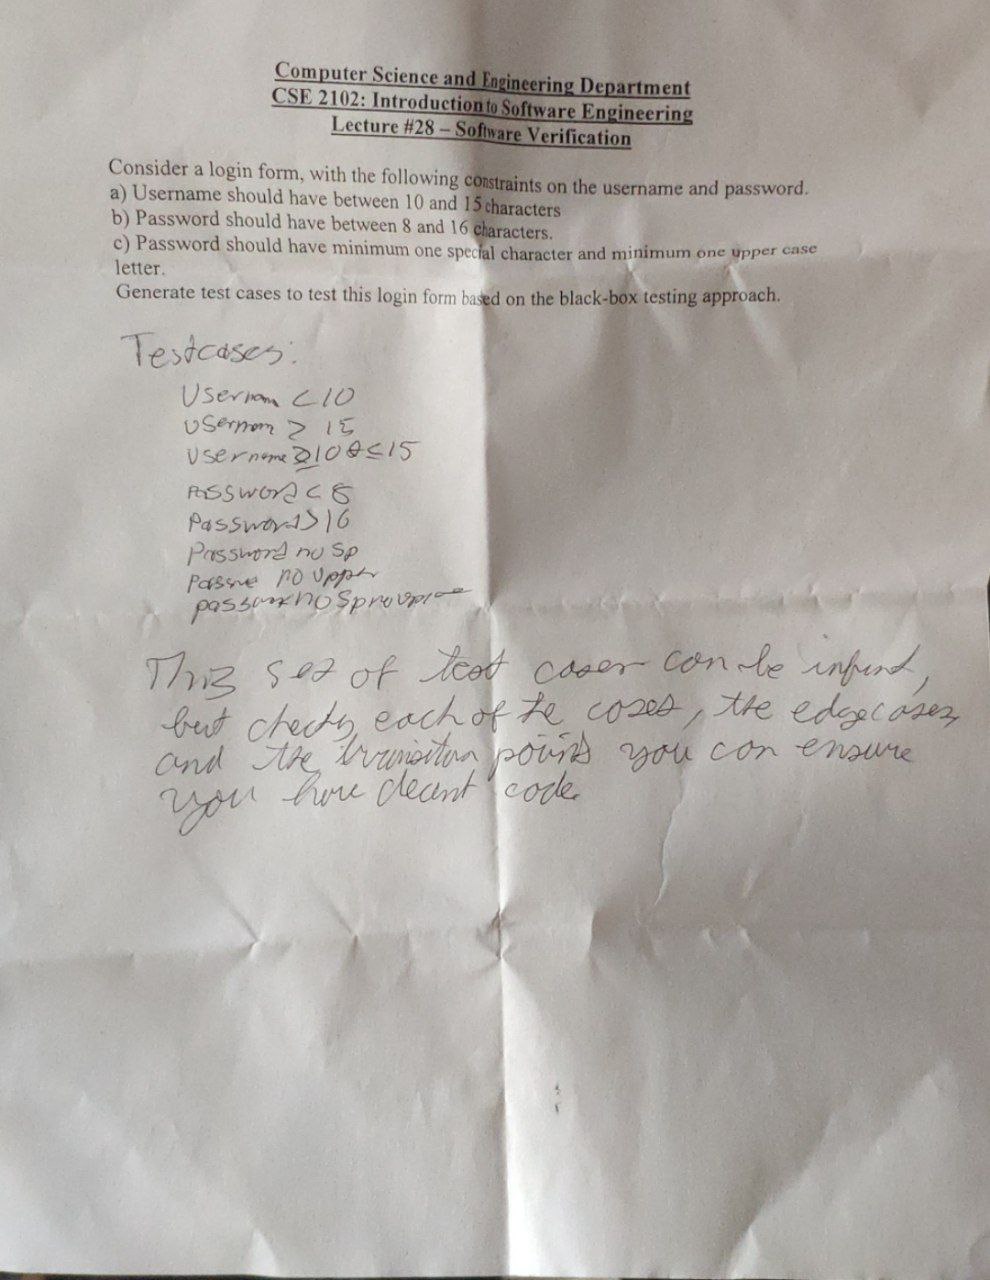 Computer Science and Engineering Department
CSE 2102: Introduction to Software Engineering
Lecture #28 – Software Verification
Consider a login form, with the following constraints on the username and password.
a) Username should have between 10 and 15 characters
b) Password should have between 8 and 16 characters.
c) Password should have minimum one special character and minimum one upper case
letter.
Generate test cases to test this login form based on the black-box testing approach.
Testcases:
Usernam < 10
Usernam > 15
Username ≥10 & ≤15
Password < 8
Password > 16
Password no sp
no upper
no sp no
This set of test cases can be
but each of the cases, the edge cases,
and the points you can ensure
you have decent code